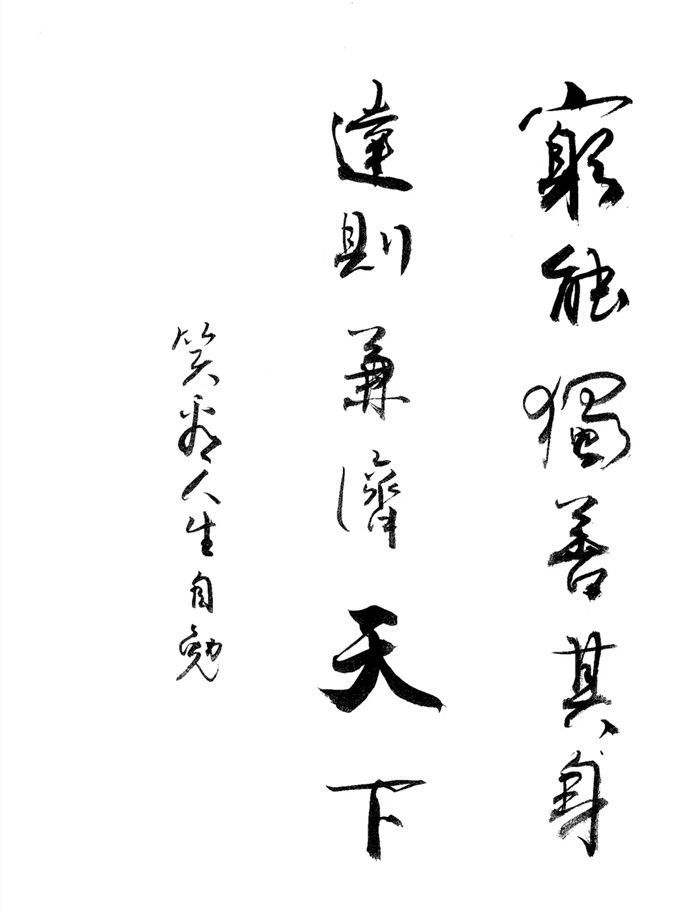 窮能獨善其身
達則兼濟天下
笑看人生自勉